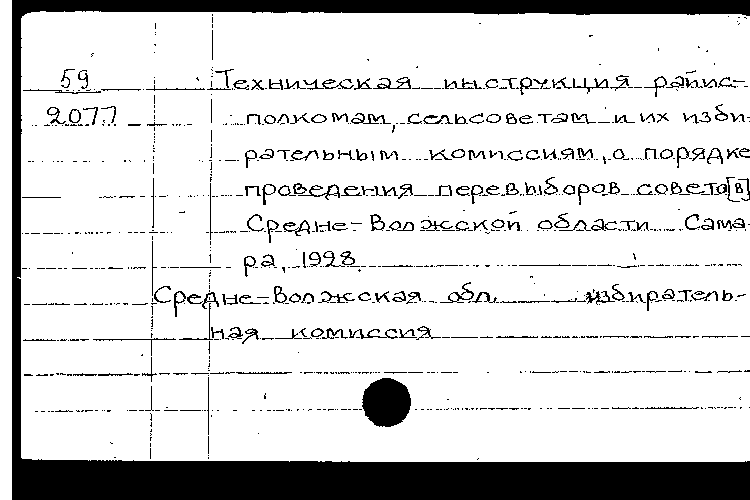 59 Техническая инструкция райис-
2077 полкомам, сельсоветам и их изби-
рательным комиссиям, о порядке
проведения перевыборов совето[в]
Средне-Волжской области Сама-
ра, 1928.
Средне-Волжская обл. избиратель-
ная комиссия